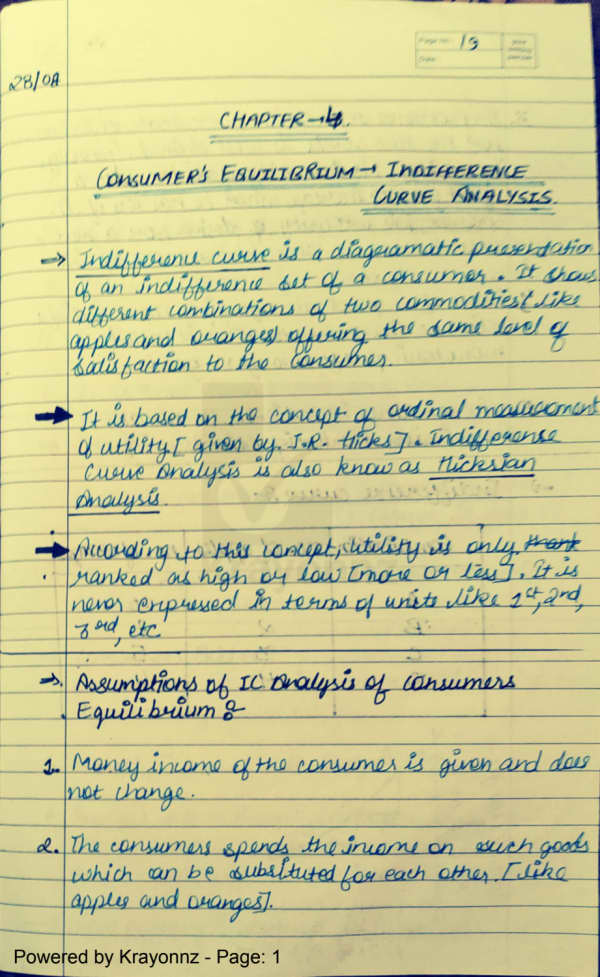 Page No. 19
Date
28/04
CHAPTER → 4.
CONSUMER'S EQUILIBRIUM → INDIFFERENCE
CURVE ANALYSIS.
→ Indifference curve is a diagramatic presentation
of an indifference set of a consumer. It shows
different combinations of two commodities (like
apples and oranges) offering the same level of
satisfaction to the Consumer.
→ It is based on the concept of ordinal measurement
of utility [given by. J.R. Hicks]. Indifference
Curve Analysis is also know as Hicksian
Analysis.
→ According to this concept, utility is only
ranked as high or low [more or less]. It is
never expressed in terms of units like 1st, 2nd,
3rd, etc
→. Assumptions of IC Analysis of consumers
Equilibrium :-
1. Money income of the consumer is given and does
not change.
2. The consumers spends the income on such goods
which can be substituted for each other. [like
apples and oranges].
Powered by Krayonnz - Page: 1